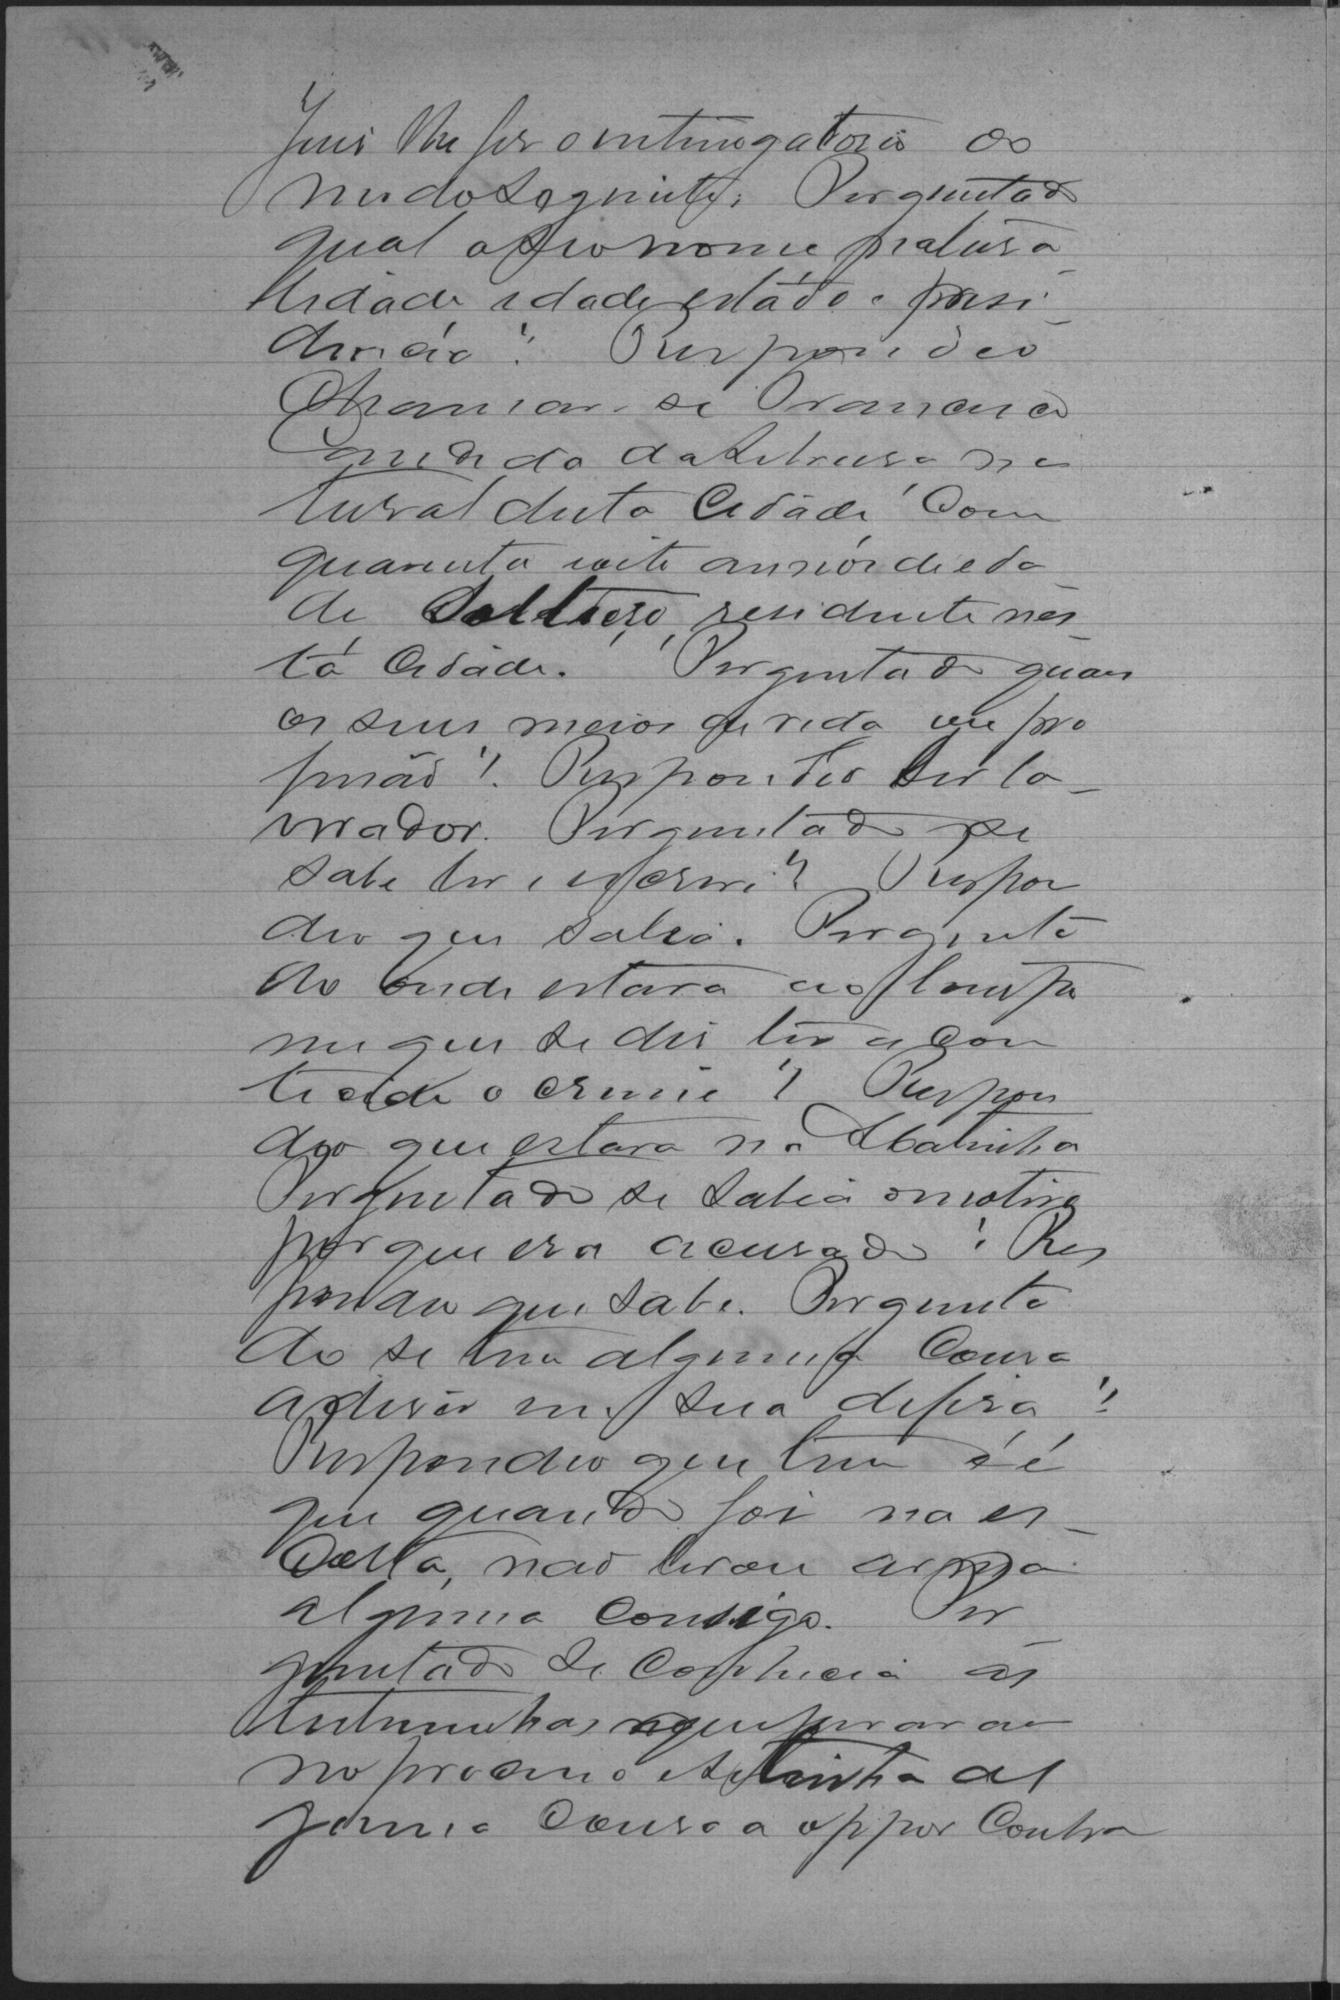 Juis lhe fes o interrogatorio do
modo seguinte: Perguntado
qual o seu nome natura-
lidade idade estado e resi-
dencia? Respondeo
chamar-se Francisco
Candido da Silveira na
tural desta Cidade com
quarenta oito annos de eda-
de Solteiro, residente nes-
ta Cidade. Perguntado quaes
os seus meios de vida ou pro
fissão? Respondeo ser la-
vrador. Perguntado se
sabe ler e escrever? Respon
deo que sabia. Pergunta
do onde estava ao tempo
em que se dis ter acon
tecido o crime? Respon
deo que estava na
Perguntado se sabia o motivo
porque era acusado? Res
pondeo que sabe. Pergunta
do se tem alguma Cousa
a diser em sua defesa?
Respondeo que tem e é
que quando foi na es-
colta, não levou arma
alguma comsigo. Per
guntado se conhecia as
testemunhas que juraram
no processo e se tinha al
guma cousa a oppor contra